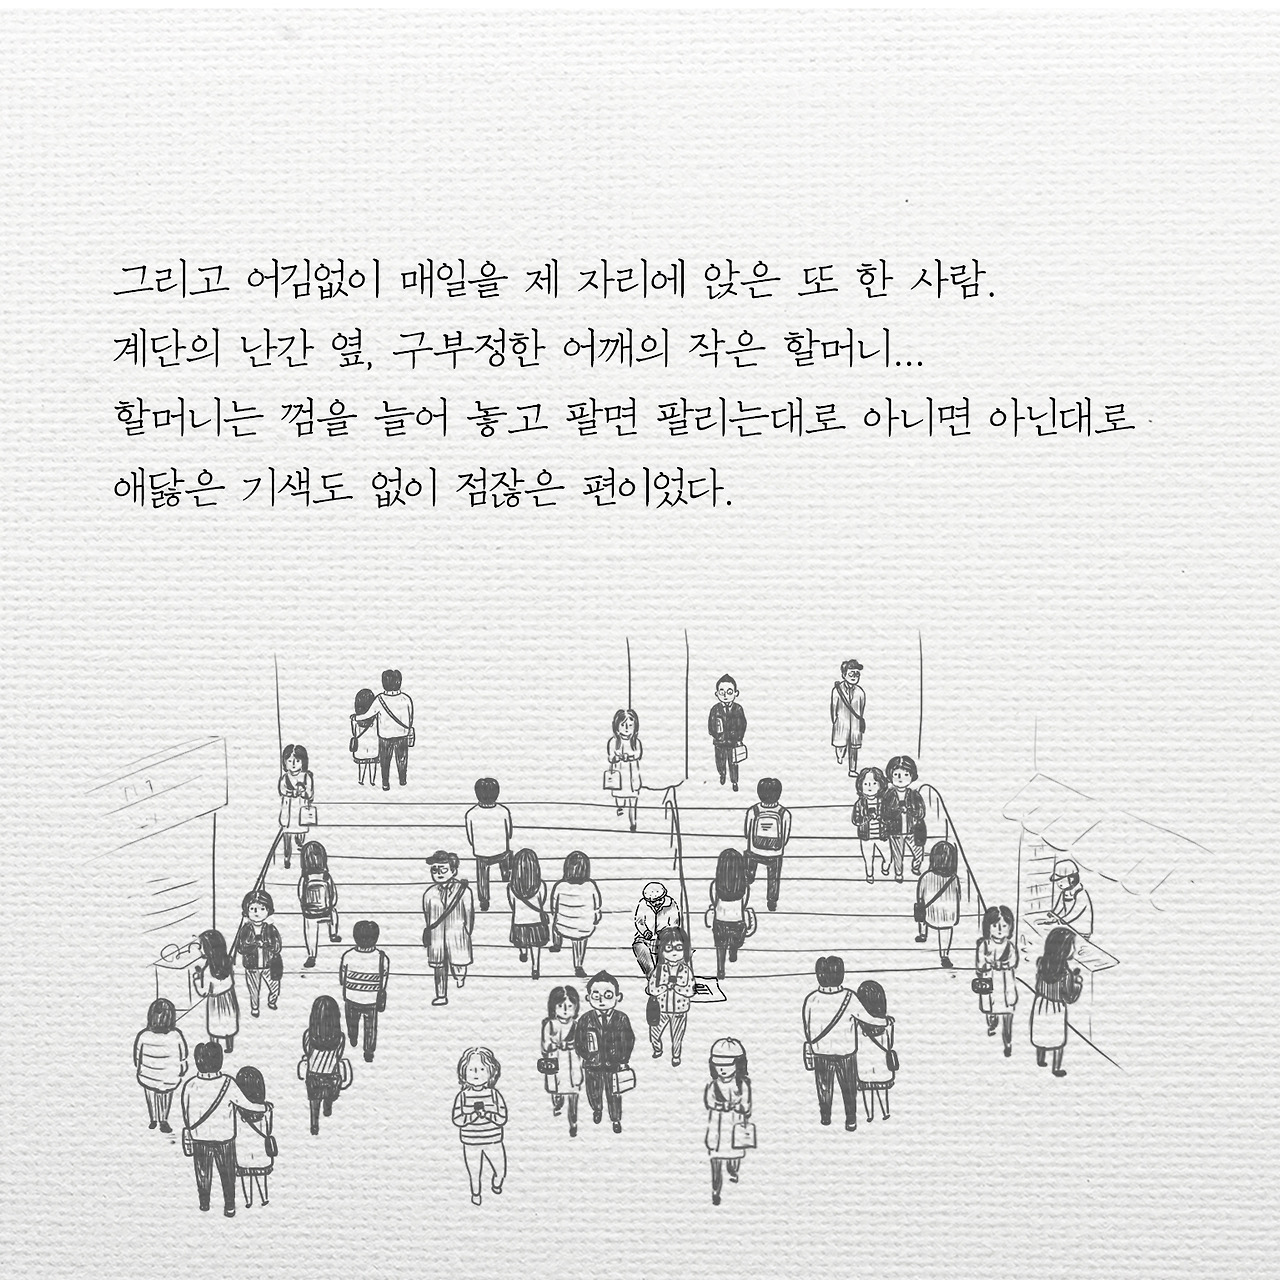 그리고 어김없이 매일을 제 자리에 앉은 또 한 사람.
계단의 난간 옆, 구부정한 어깨의 작은 할머니...
할머니는 껌을 늘어 놓고 팔면 팔리는대로 아니면 아닌대로
애닳은 기색도 없이 점잖은 편이었다.